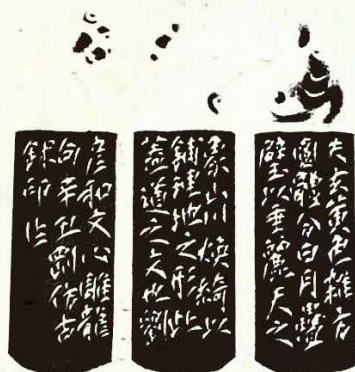 夫玄黃色雜方
圓體分日月疊
璧以垂麗天之
象山川煥綺以
鋪理地之形此
蓋道之文也劉
彥和文心雕龍
句辛丑剛仿古
鉥印作